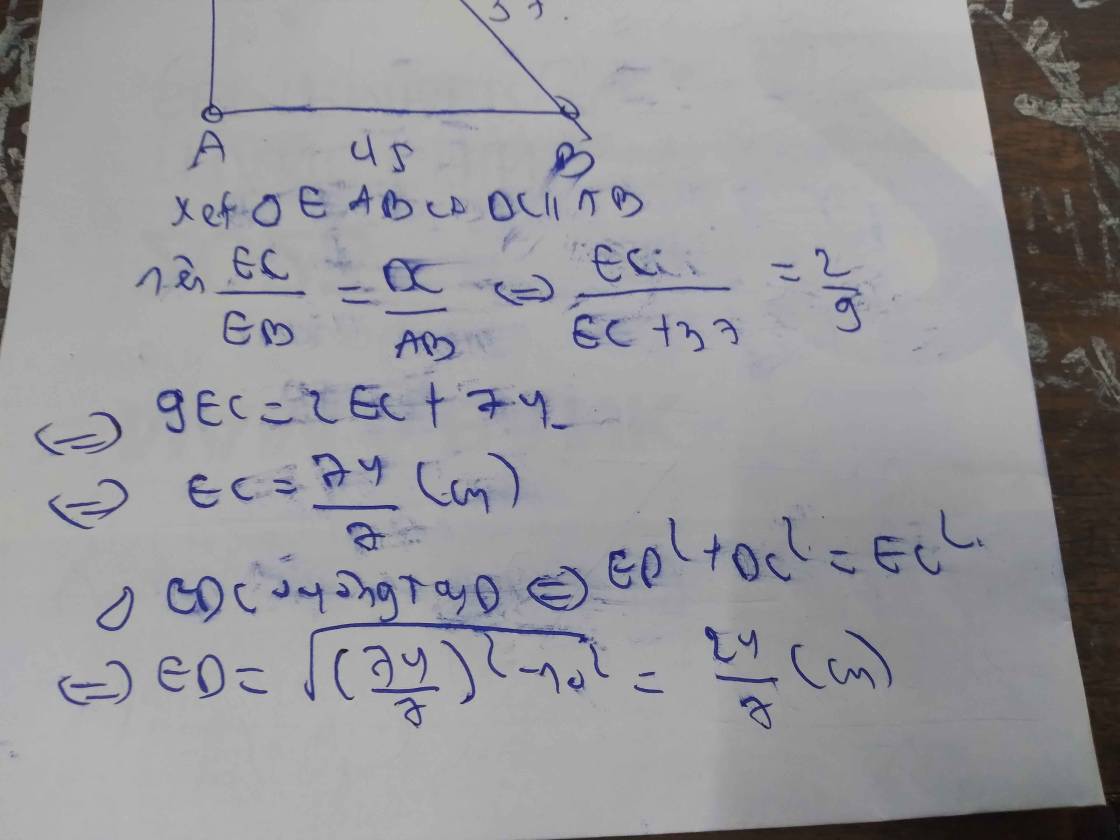 37.
A 45 B
xet Δ EAB có DC || AB
nên EC/EB = DC/AB <=> EC/(EC + 37) = 2/9
<=> 9EC = 2EC + 74
<=> EC = 74/7 (cm)
Δ EDC vuông tại D <=> ED² + DC² = EC².
<=> ED = √((74/7)² - 10²) = 24/7 (cm)